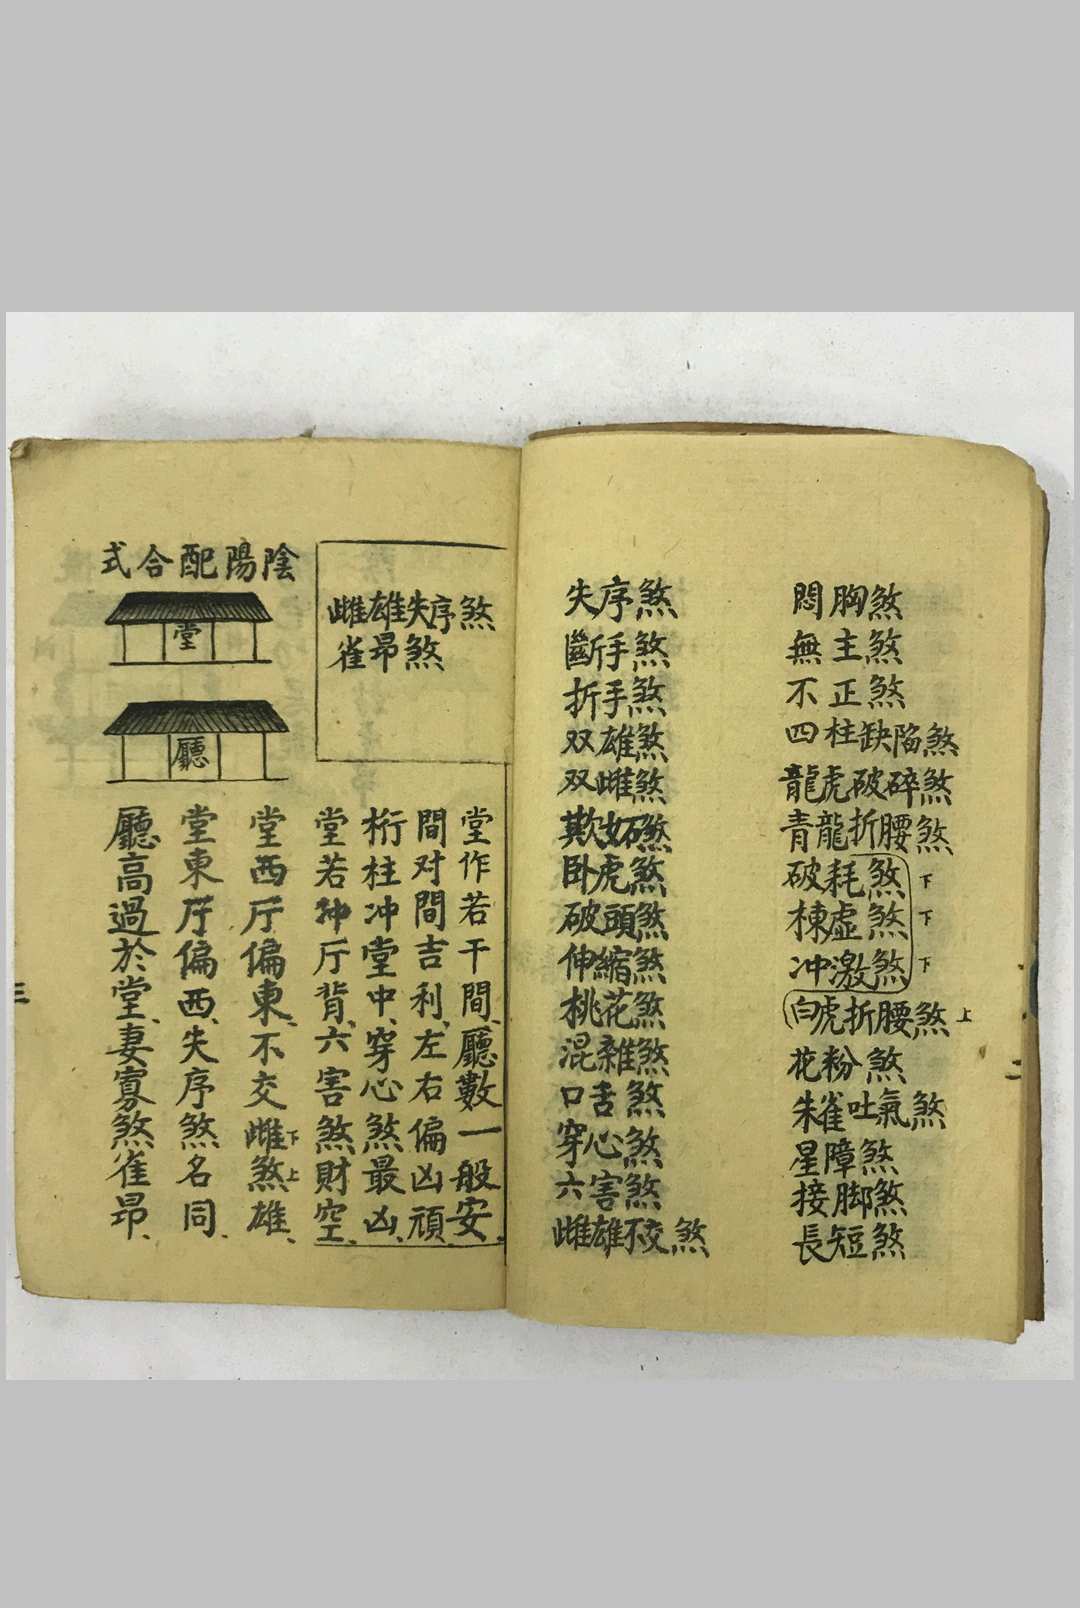 悶胸煞
無主煞
不正煞
四柱缺陷煞
龍虎破碎煞
青龍折腰煞
破耗煞 下
棟虛煞 下
冲激煞 下
白虎折腰煞 上
花粉煞
朱雀吐氣煞
星障煞
接脚煞
長短煞
失序煞
斷手煞
折手煞
双雄煞
双雌煞
欺妬煞
卧虎煞
破頭煞
伸縮煞
桃花煞
混雜煞
口舌煞
穿心煞
六害煞
雌雄不交煞
雌雄失序煞
雀昂煞
陰陽配合式
堂
廳
堂作若干間、廳數一般安、
間对間吉利、左右偏凶頑、
桁柱冲堂中、穿心煞最凶、
堂若冲厅背、六害煞財空、
堂西厅偏東、不交雌下煞上雄、
堂東厅偏西、失序煞名同、
廳高過於堂、妻寡煞雀昂、
三